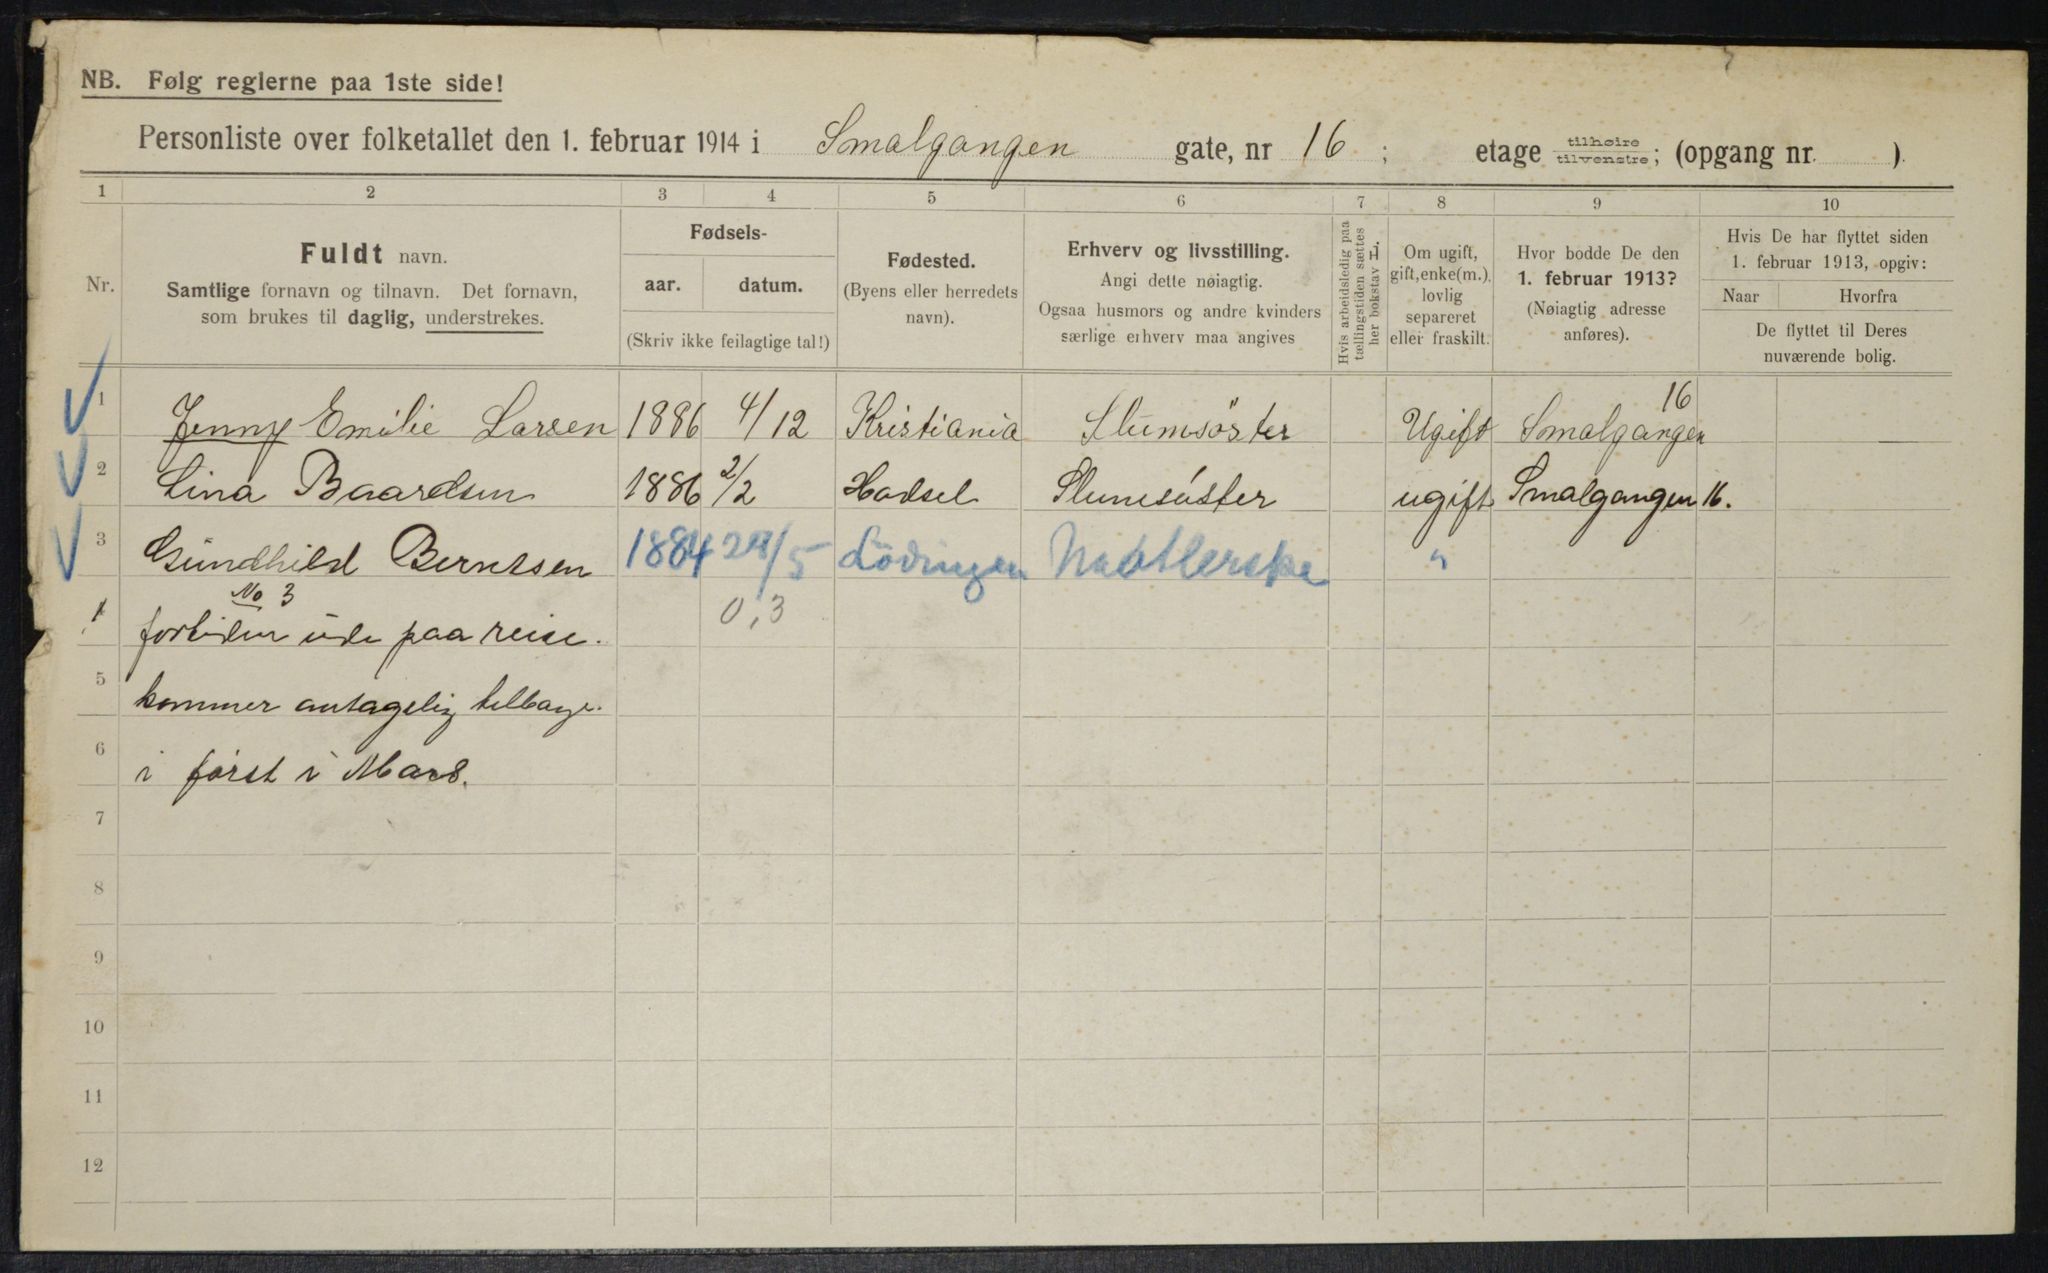 NB. Følg reglerne paa 1ste side!
Personliste over folketallet den 1. februar 1914 i Smalgangen gate, nr 16 ; etage tilhøire tilvenstre; (opgang nr. ).
1 2 3 4 5 6 7 8 9 10
Nr.
Fuldt navn.
Samtlige fornavn og tilnavn. Det fornavn,
som brukes til daglig, understrekes.
Fødsels-
aar. datum.
(Skriv ikke feilagtige tal!)
Fødested.
(Byens eller herredets
navn).
Erhverv og livsstilling.
Angi dette nøiagtig.
Ogsaa husmors og andre kvinders
særlige erhverv maa angives
Hvis arbeidsledig paa
tællingstiden sættes
her bokstav L.
Om ugift,
gift, enke(m.),
lovlig
separeret
eller fraskilt.
Hvor bodde De den
1. februar 1913?
(Nøiagtig adresse
anføres).
Hvis De har flyttet siden
1. februar 1913, opgiv:
Naar Hvorfra
De flyttet til Deres
nuværende bolig.
1 Jenny Emilie Larsen 1886 4/12 Kristiania Slumsöster Ugift Smalgangen 16
2 Lina Baardsen 1886 2/2 Hadsel Slumsöster ugift Smalgangen 16.
3 Gundhild Berntsen 1884 24/5 Lödingen "
No 3
0,3
4 fortiden ude paa reise.
5 kommer antagelig tilbage.
6 i först i Mars.
7
8
9
10
11
12